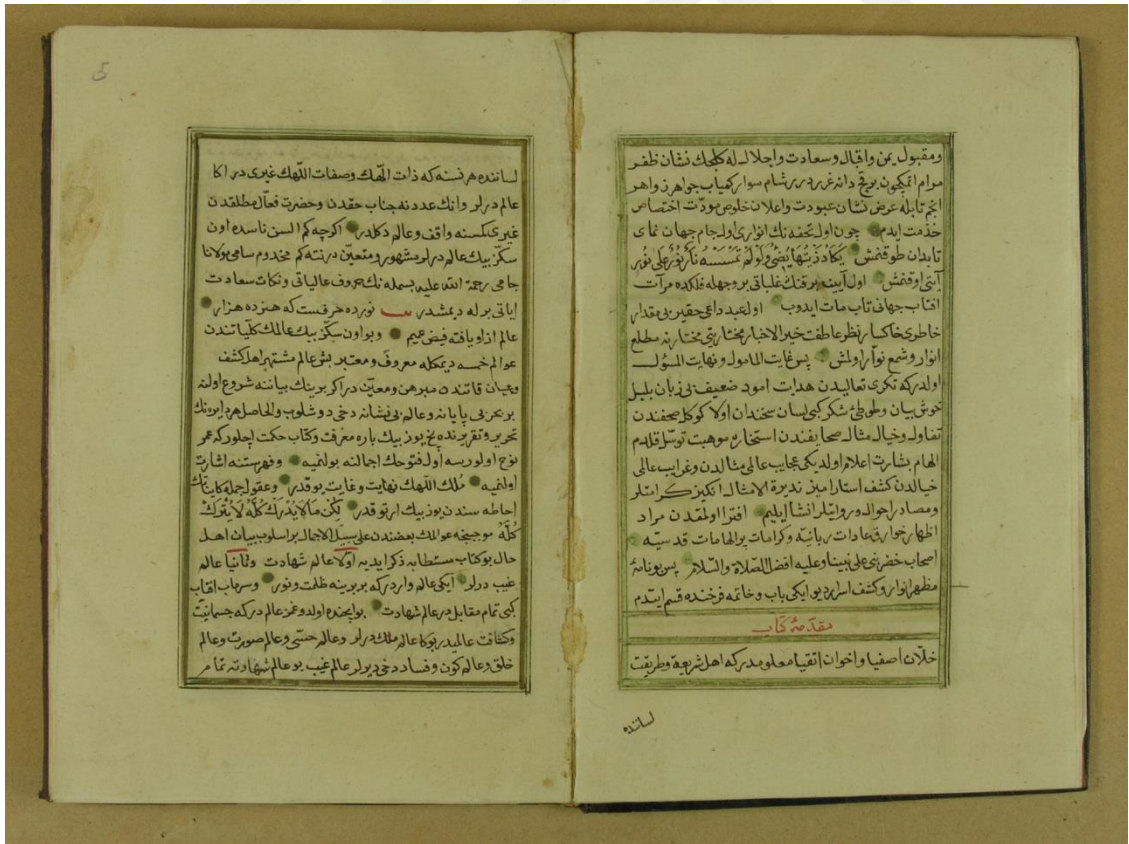 ومقبول يمن واقبال وسعادت واجلال له كلجك نشان ظفر
مرام اتمكچون برقچ دانه غرر درر شام سوار كمياب جواهر زواهر
انجم تابله عرض نشان عبودت واعلان خلوص مودّت اختصاص
خذمت ايدم چون اول تحفه نك انوارى اول جام جهان نماى
تابدان طوقنمش يَكَادُ زَيْتُهَا يُضِئُ وَلَوْ لَمْ تَمْسَسْهُ نَارٌ نُورٌ عَلَى نُورٍ
آيتى اوقنمش اول آيينه برقنك غلباتى بر وجهله فلكده مرآت
افتاب جهانى تاب مات ايدوب اول عبد داعى حقير بى مقدار
خاطرى خاكسار نظر عاطفت خير الاخيار مختاريتى مختارنه مطلع
انوار وشمع نوّار اولمش پس غايت المامول ونهايت المسؤل
اولدركه تكرى تعاليدن هدايت اموب ضعيف بى زبان بلبل
خوش بيان وطوطئ شكر كبى لسان سخندان اولا كوكل صحفندن
تفاول وخيال مثال صحايفندن استخاره موهبت توسّل قلدم
الهام بشارت اعلام اولديكى عجايب عالم مثالدن وغرايب عالم
خيالدن كشف استار اميز نديرة الامثال انكيز كرامتلر
ومصادر احوال وروايتلر انشا ايليم افترا اولمقدن مراد
اظهار خوارق عادات ربانيّه وكرامات پر الهامات قدسيّه
اصحاب خضر نبى على نبينا وعليه افضل الصّلاة والسّلام پس بونامۀ
مظهر انوار وكشف اسرار ديو ايكى باب وخاتمه فرخنده قسم ايتدم
مقدّمۀ كتاب
خلّان اصفيا واخوان اتقيا معلومدركه اهل شريعة وطريقت
لساننده
5
لساننده هر نسنه كه ذات الٓهك وصفات اللّهك غيرى در اكا
عالم درلر وانك عددنه جناب حقدن وحضرت فعّال مطلقدن
غيرى كمسنه واقف وعالم دكلدر اكرچه كم السن ناسده اون
سكّز بيك عالم درلر مشهور ومتعيّن درنته كم مخدوم سامى مولانا
جامى رحمة الله عليه بسمله نك حروف عالياتى ونكات سعادت
اياتى بوله ديمشدر نوزده حرفست كه هژده هزار
عالم ازاو يافته فيض عميم وبو اون سكّز بيك عالمك كلّياتندن
عوالم خمسه ديمكله معروف ومعتبر بش عالم مشتهر اهل كشف
وعيان قاتنده مبرهن ومعيّن در اكر برينك بياننه شروع اولنه
بر بحر بى پايانه وعالم بى نشانه دخى دوشلوب والحاصل هر دايره نك
تحرير وتقريرنده نيچه يوز بيك پاره معرفت وكتاب حكت اچلور كه عمر
نوح اولورسه اول فتوحك اجمالنه بولنميه وفهرستنه اشارت
اولنميه مُلك اللّهك نهايت وغايت يوقدر وعقول جمله كايناتك
احاطه سندن يوز بيك ارتوقدر لٰكِنْ مَا لَا يُدْرَكُ كُلُّهُ لَا يُتْرَكُ
كُلُّهُ موجبنجه عوالمك بعضندن على سبيل الاجمال بر اسلوب بيان اهل
حال بو كتاب مستطابه ذكر ايديه اوّلا عالم شهادت وثانيا عالم
غيب درلر ايكى عالم واردركه بربرينه ظلت ونور وسرماب افتاب
كبى تمام مقابل در عالم شهادت بوايچنده اولدوغمز عالم دركه جسمانيّت
وكثافت عالميدر بوكا عالم ملك درلر وعالم حسّى وعالم صورت وعالم
خلق وعالم كون وفساد دخى ديرلر عالم غيب بو عالم شهادته تمام